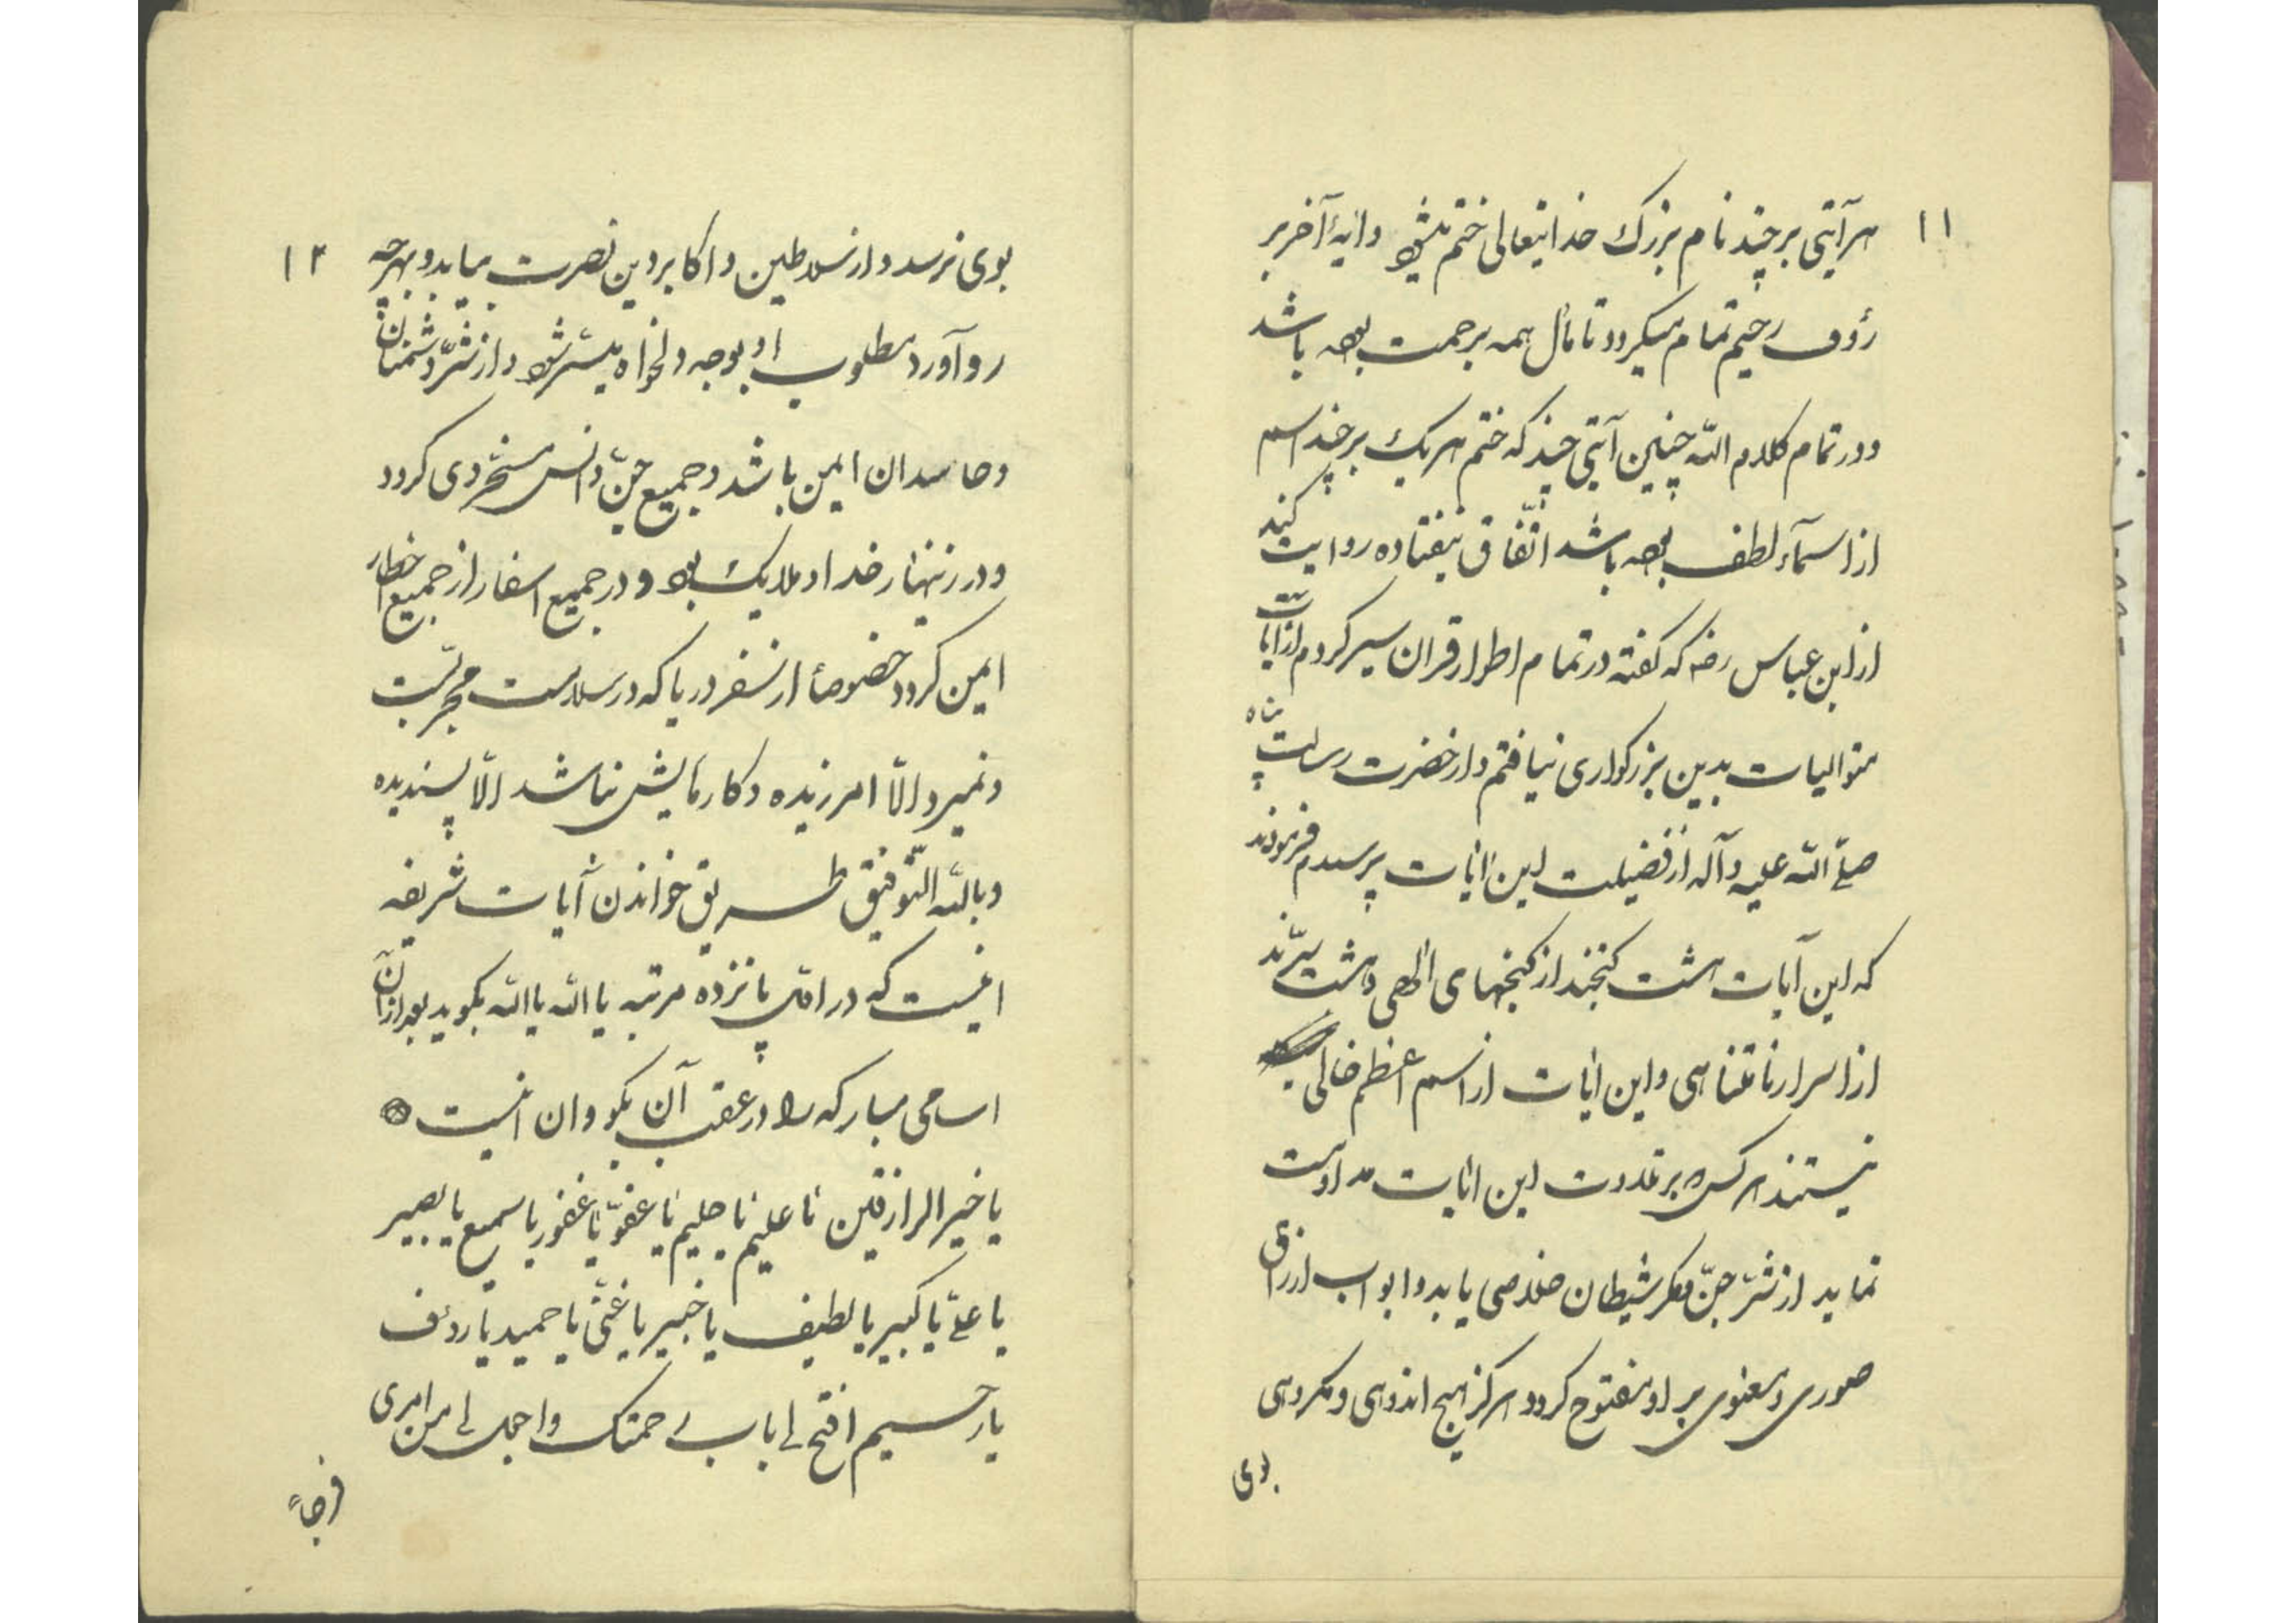 ۱۱
هر آیتی بر چند نام بزرک خدایتعالی ختم میشود وایهٔ آخر بر
رؤف رحیم تمام میکردد تا مآل همه برحمت بوده باشد
ودر تمام کلام الله چنین آیتی چند که ختم هر یک بر چند اسم
از اسمآء لطف بوده باشد اتّفاق نیفتاده روایت کنند
از ابن عباس رضه که کفته در تمام اطوار قران سیر کردم از ایات
متوالیات بدین بزرکواری نیافتم واز حضرت رسالت پناه
صلّی الله علیه وآله از فضیلت این ایات پرسیدم فرمودند
که این آیات هشت کنجند از کنجهای الهی وهشت سرّند
از اسرار نامتناهی واین ایات از اسم اعظم خالی
نیستند هر کس بر تلاوت این ایات مداومت
نماید از شرّ جنّ ومکر شیطان خلاصی یابد وابواب ارزاق
صوری ومعنوی بر او مفتوح کردد هرکز هیچ اندوهی ومکروهی
بوی
۱۲
بوی نرسد واز سلاطین واکابر دین نصرت بیابد وبهرچه
رو آورد مطلوب او بوجه دلخواه میسّر شود واز شرّ دشمنان
وحاسدان ایمن باشد وجمیع جنّ وانس مسخّر وی کردد
ودر زینهار خدا وملایک بود ودر جمیع اسفار از جمیع اخطار
ایمن کردد خصوصاً از سفر دریا که در سلامت مجرّبست
ونمیرد الّا امرزیده وکارهایش نباشد الّا پسندیده
وبالله التّوفیق طریق خواندن آیات شریفه
اینست که در اوّل پانزده مرتبه یا الله یا الله بکوید بعد از آن
اسامی مبارکه را در عقب آن بکو وان اینست
یا خیر الرازقین یا علیم یا حلیم یا عفوّ یا غفور یا سمیع یا بصیر
یا علیّ یا کبیر یا لطیف یا خبیر یا غنیّ یا حمید یا رؤف
یا رحیم افتح لی باب رحمتک واجعل لی من امری
فرجاً